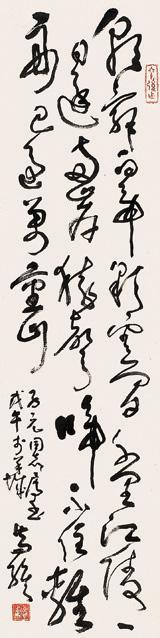 朝辭白帝彩雲間千里江陵一
日還兩岸猿聲啼不住輕
舟已過萬重山
同志屬書
戊午